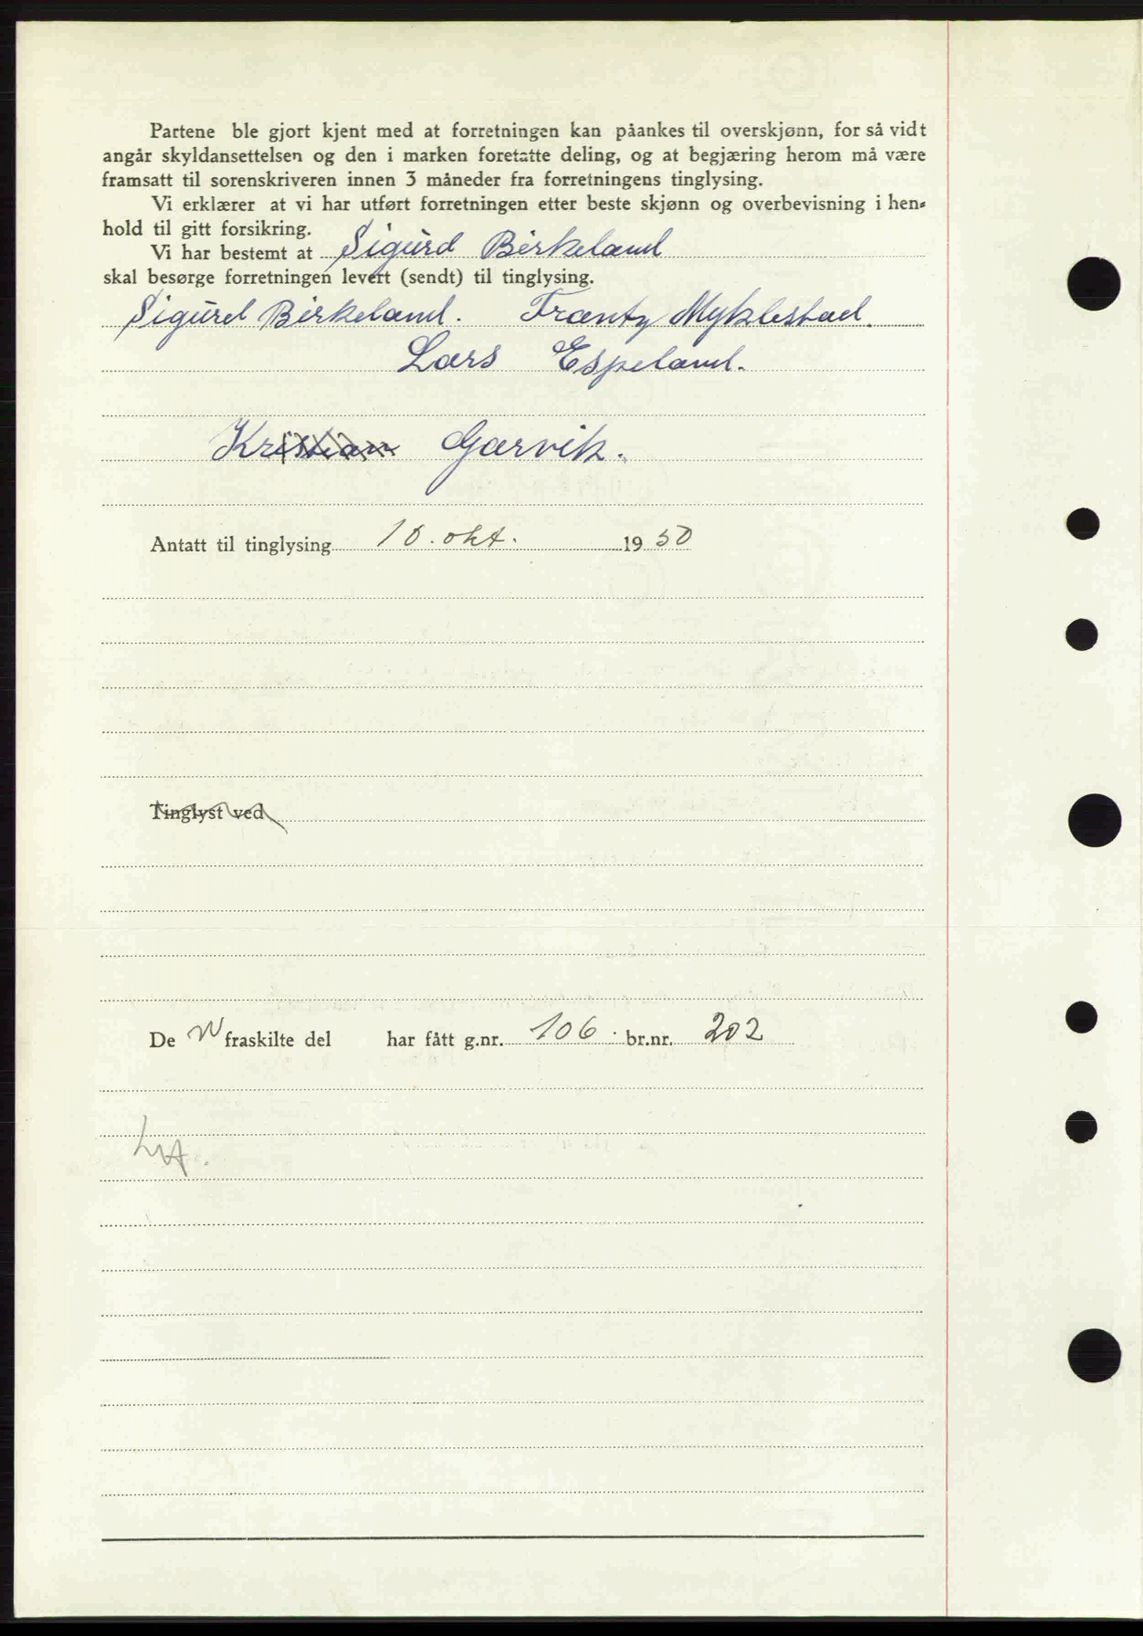 Partene ble gjort kjent med at forretningen kan påankes til overskjønn, for så vidt
angår skyldansettelsen og den i marken foretatte deling, og at begjæring herom må være
framsatt til sorenskriveren innen 3 måneder fra forretningens tinglysing.
Vi erklærer at vi har utført forretningen etter beste skjønn og overbevisning i hen-
hold til gitt forsikring.
Vi har bestemt at Sigurd Birkeland
skal besørge forretningen levert (sendt) til tinglysing.
Sigurd Birkeland. Frantz Myklestad.
Lars Espeland.
Kristian Garvik.
Antatt til tinglysing 10. okt. 1950
Tinglyst ved
De n fraskilte del har fått g.nr. 106. br.nr. 202